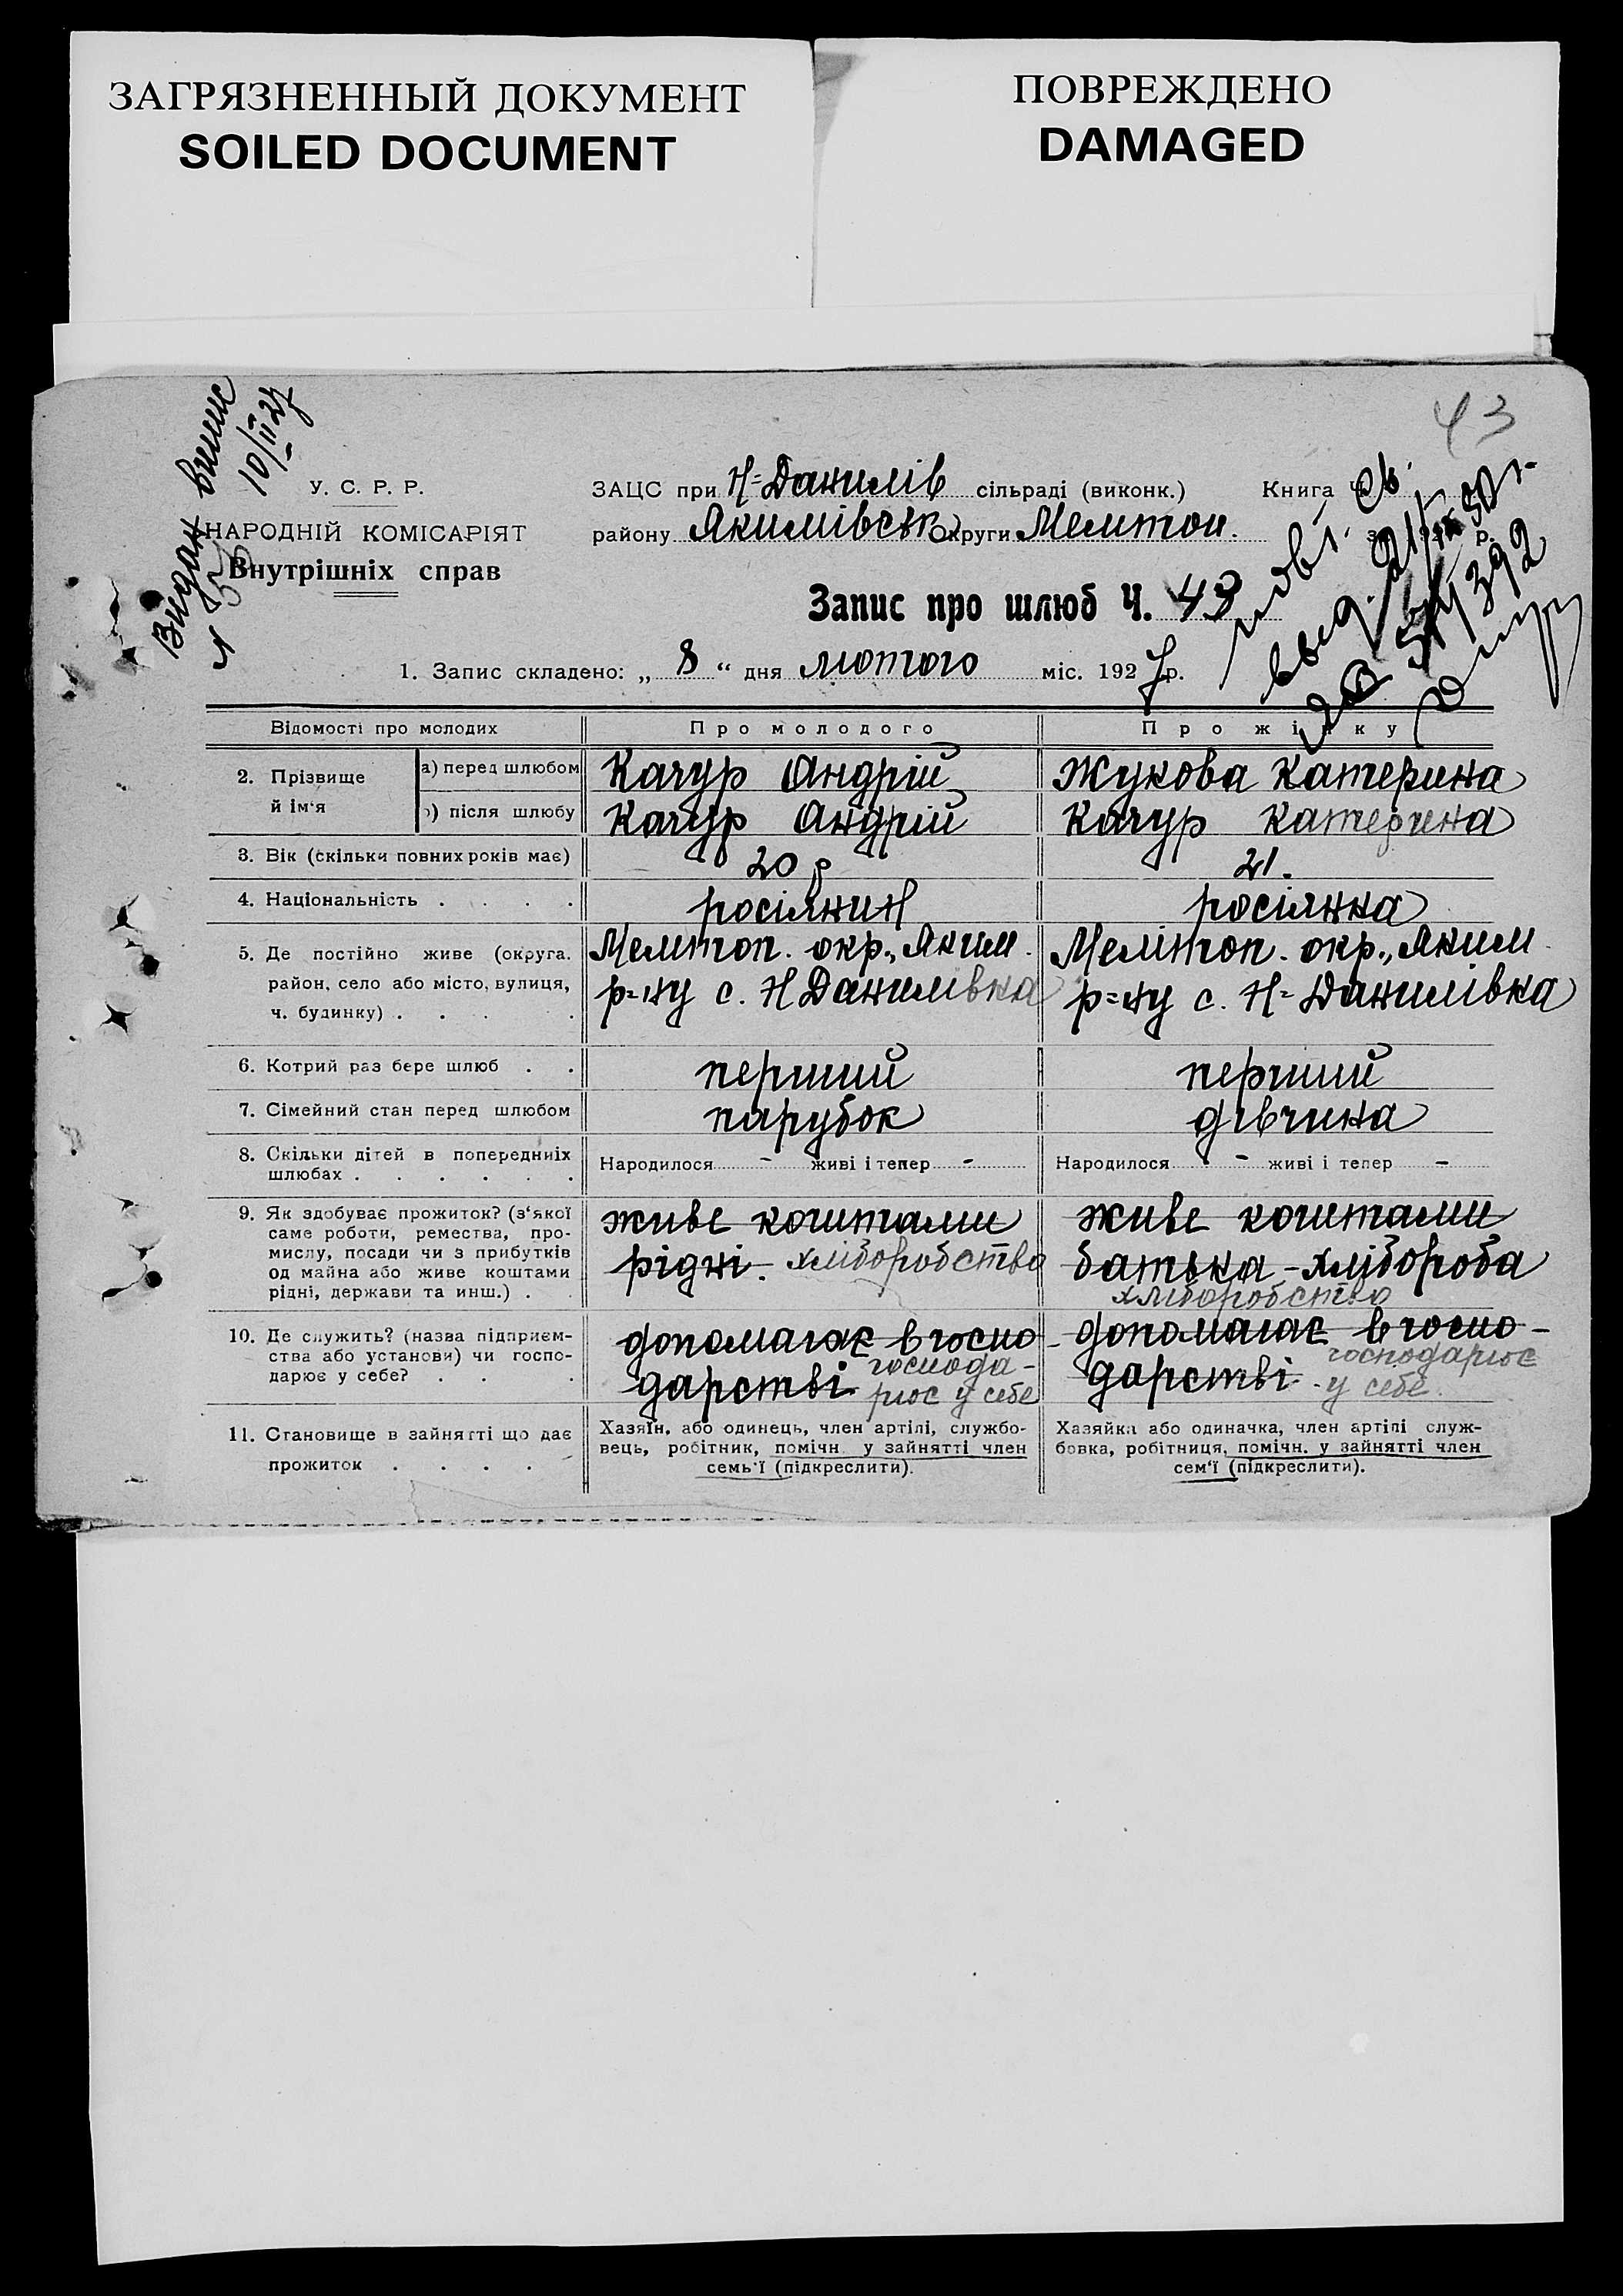 ЗАГРЯЗНЕННЫЙ ДОКУМЕНТ
SOILED DOCUMENT
ПОВРЕЖДЕНО
DAMAGED
43
Видан випис
10/II 27
У. С. Р. Р.
НАРОДНІЙ КОМІСАРІЯТ
Внутрішніх справ
ЗАЦС при Н=Данилів сільраді (виконк.) Книга
району Якимівськ округи Мелитоп.
Запис про шлюб Ч. 43
повт. св.
выд.
392
1. Запис складено: „ 8 “ дня лютого міс. 1927 р.
Відомості про молодих Про молодого Про жінку
2. Прізвище й ім‘я
а) перед шлюбом Качур Андрій Жукова Катерина
б) після шлюбу Качур Андрій Качур Катерина
3. Вік (скільки повних років має) 20 р 21.
4. Національність . . . . росіянин росіянка
5. Де постійно живе (округа. район, село або місто, вулиця, ч. будинку) . . . .
Мелитоп. окр., Яким.
р=ну с. Н Данилівка
Мелітоп. окр., Яким.
р=ну с. Н=Данилівка
6. Котрий раз бере шлюб . . перший перший
7. Сімейний стан перед шлюбом парубок дівчина
8. Скільки дітей в попередніх
шлюбах . . . . . .
Народилося - живі і тепер -
Народилося - живі і тепер -
9. Як здобуває прожиток? (з‘якої
саме роботи, ремества, про-
мислу, посади чи з прибутків
од майна або живе коштами
рідні, держави та инш.) . .
живе коштами
рідні. хліборобство
живе коштами
батька - хлібороба
хліборобство
10. Де служить? (назва підприєм-
ства або установи) чи госпо-
дарює у себе? . . .
допомагає в госпо-
дарстві господа-
рює у себе
допомагає в госпо-
дарстві. господарює
у себе.
11. Становище в зайнятті що дає
прожиток . . . .
Хазяїн, або одинець, член артілі, службо-
вець, робітник, помічн у зайнятті член
семь‘ї (підкреслити).
Хазяйка або одиначка, член артілі служ-
бовка, робітниця, помічн. у зайнятті член
сем‘ї (підкреслити).